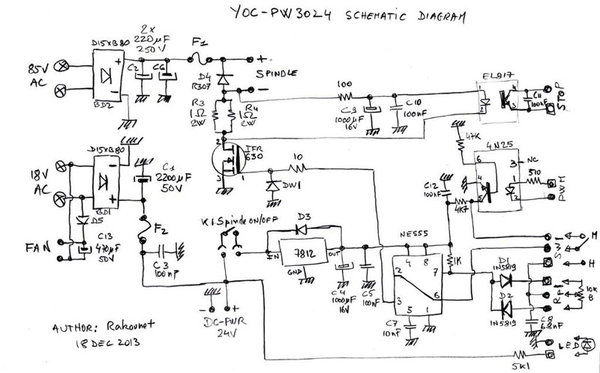 YOC-PW3024 SCHEMATIC DIAGRAM
D15XB80
2x
220µF
250V
F1
+
-
SPINDLE
85V
AC
BD2
C2
C6
D4
R307
R3
1Ω
2W
R4
1Ω
2W
100
C9
1000µF
16V
C10
100nF
EL817
C11
100nF
STOP
D15XB80
18V
AC
BD1
C1
2200µF
50V
IFR
630
10
DW1
47K
4N25
NC
510
PWM
6
5
4
3
2
1
C12
100nF
4K7
D5
FAN
C13
470µF
50V
F2
C3
100nF
K1.Spindle on/off
D3
7812
IN
OUT
GND
C4
1000µF
16V
C5
100nF
NE555
4
8
2
7
3
6
5
1
1K
C7
10nF
D1
1N5819
D2
1N5819
C8
6.8nF
M
H
10K
B
LED
5K1
- +
DC-PWR
24V
AUTHOR: Rakounet
18 DEC 2013